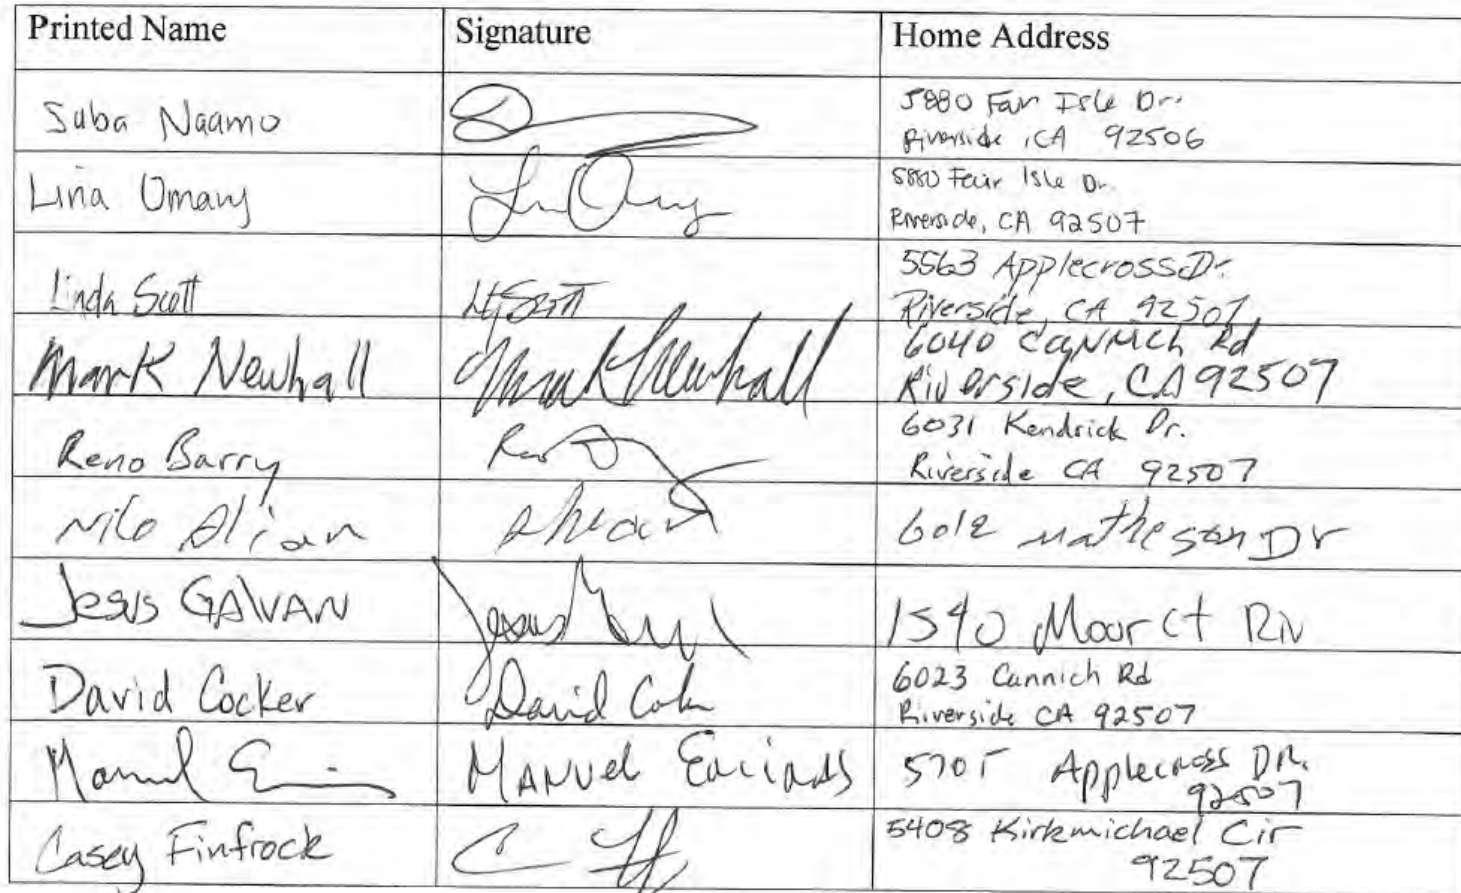 Printed Name Signature Home Address
Suba Naamo 5880 Fair Isle Dr.
Riverside, CA 92506
Lina Umany 5880 Fair Isle Dr.
Riverside, CA 92507
Linda Scott Scott 5563 Applecross Dr.
Riverside, CA 92507
Mark Newhall Mark Newhall 6040 Cannich Rd
Riverside, CA 92507
Reno Barry 6031 Kendrick Dr.
Riverside CA 92507
Nilo Alian 6012 Matheson Dr
Jesus GALVAN Jesus 1540 Moor ct Riv
David Cocker David 6023 Cannich Rd
Riverside CA 92507
Manuel MANUel Encinas 5705 Applecross DR.
92507
Casey Finfrock 5408 Kirkmichael Cir
92507